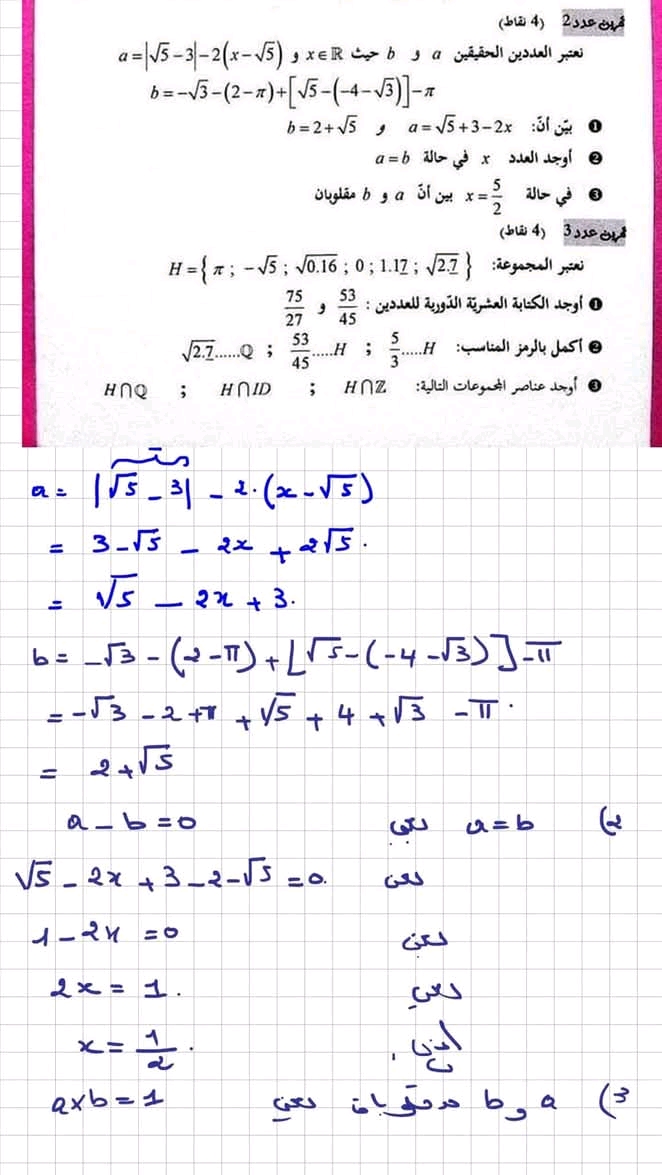 تمرين عدد 2 (4 نقاط)
نعتبر العددين الحقيقين a و b حيث x∈ℝ و a=|√5-3|-2(x-√5)
b=-√3-(2-π)+[√5-(-4-√3)]-π
❶ بيّن أنّ: a=√5+3-2x و b=2+√5
❷ أوجد العدد x في حالة a=b
❸ في حالة x=5/2 بين أنّ a و b مقلوبان
تمرين عدد 3 (4 نقاط)
نعتبر المجموعة: H={π ; -√5 ; √0.16 ; 0 ; 1.1̲7̲ ; √2.7̲}
❶ أوجد الكتابة العشريّة الدّورية للعددين : 53/45 و 75/27
❷ أكمل بالرمز المناسب: 5/3.....H ; 53/45.....H ; √2.7̲......ℚ
❸ أوجد عناصر المجموعات التالية: H∩ℤ ; H∩ID ; H∩ℚ
a= |√5 - 3| - 2.(x-√5)
= 3-√5 - 2x + 2√5.
= √5 - 2x + 3.
b= -√3 - (2-π)+[√5-(-4-√3)]-π
=-√3 -2+π +√5 + 4 +√3 -π.
= 2+√5
2) a=b يعني a-b=0
يعني √5-2x+3-2-√5=0.
يعني 1-2x=0
يعني 2x=1.
إذن x=1/2.
3) a و b مقلوبان يعني a×b=1